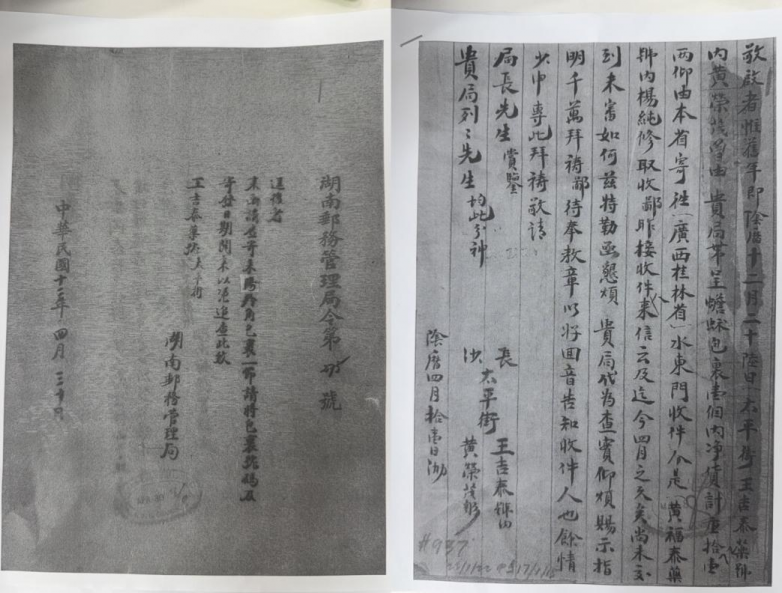 敬啟者惟舊年即陰曆十二月二十陸日太平街王吉泰藥號
內黃榮茂曾由 貴局帶呈蟾蜍包裹壹個內净貨計重拾壹
两仰由本省寄往(廣西桂林省)水東門收件人是(黃福泰藥
號內楊純修取收鄙昨接收件人來信云及迄今四月之久矣尚未交
到未審如何茲特勒函懇煩 貴局代為查實仰煩賜示指
明千萬拜禱鄙待奉教章以好回音告知收件人也餘情
少申專此拜禱敬請
局長先生賞鑒
貴局列々先生均此分神
長沙太平街 王吉泰號內
黃榮茂
陰曆四月拾壹日泐
#937
湖南郵務管理局令第 號
逕復者
來函讀悉寄來 羚角包裹一節請將包裹號碼及
寄發日期開來以憑追查此致
王吉泰藥號太平街
湖南郵務管理局
中華民國十三年四月三十日